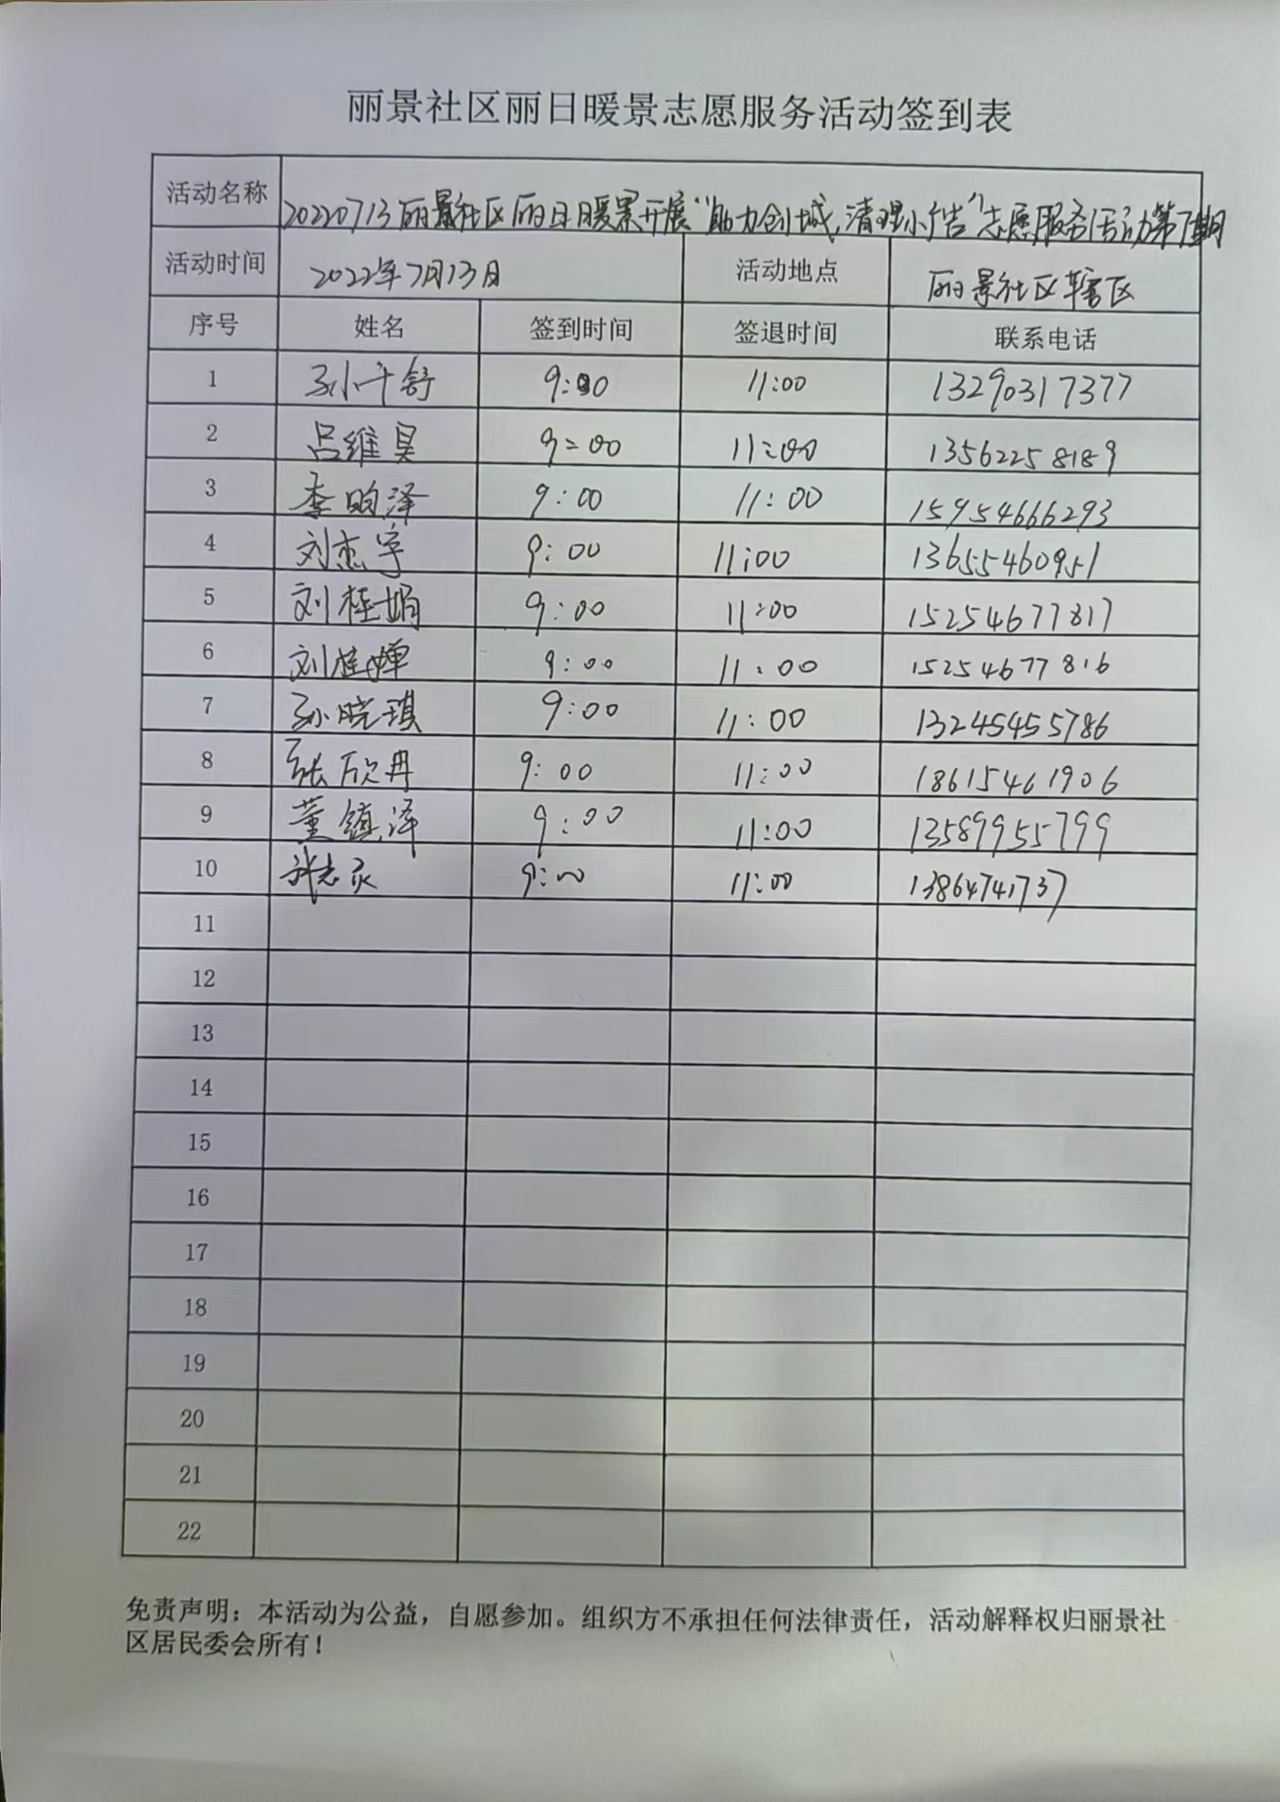 丽景社区丽日暖景志愿服务活动签到表
活动名称 20220713丽景社区丽日暖景开展“助力创城,清理小广告”志愿服务活动第7期
活动时间 2022年7月13日 活动地点 丽景社区辖区
序号 姓名 签到时间 签退时间 联系电话
1 孙千舒 9:00 11:00 13290317377
2 吕维昊 9:00 11:00 13562258189
3 李昀泽 9:00 11:00 15954666293
4 刘杰宇 9:00 11:00 13655460951
5 刘桂娟 9:00 11:00 15254677817
6 刘桂婵 9:00 11:00 15254677816
7 孙晓琪 9:00 11:00 13245455786
8 张欣冉 9:00 11:00 18615461906
9 董镇泽 9:00 11:00 13589955799
10 9:00 11:00 13864741737
11
12
13
14
15
16
17
18
19
20
21
22
免责声明：本活动为公益，自愿参加。组织方不承担任何法律责任，活动解释权归丽景社
区居民委会所有！